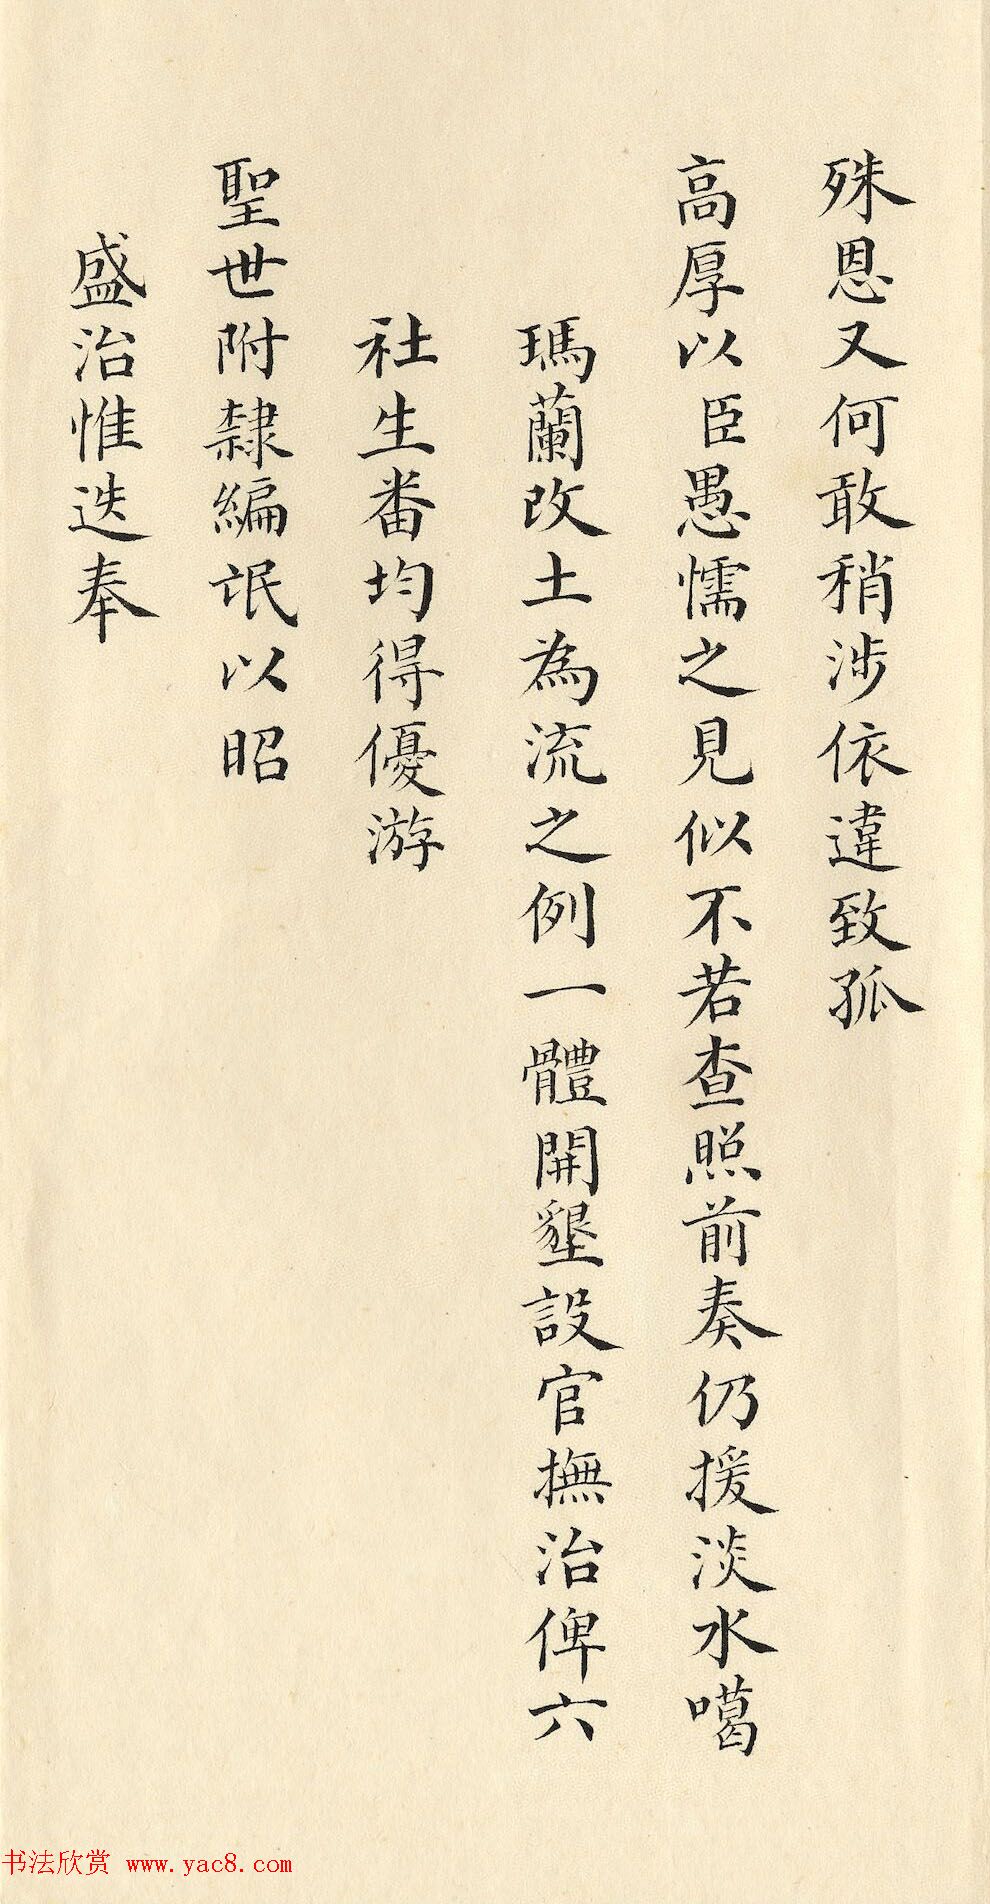 殊恩又何敢稍涉依違致孤
高厚以臣愚懦之見似不若查照前奏仍援淡水噶
瑪蘭改土為流之例一體開墾設官撫治俾六
社生番均得優游
聖世附隸編氓以昭
盛治惟迭奉
书法欣赏 www.yac8.com